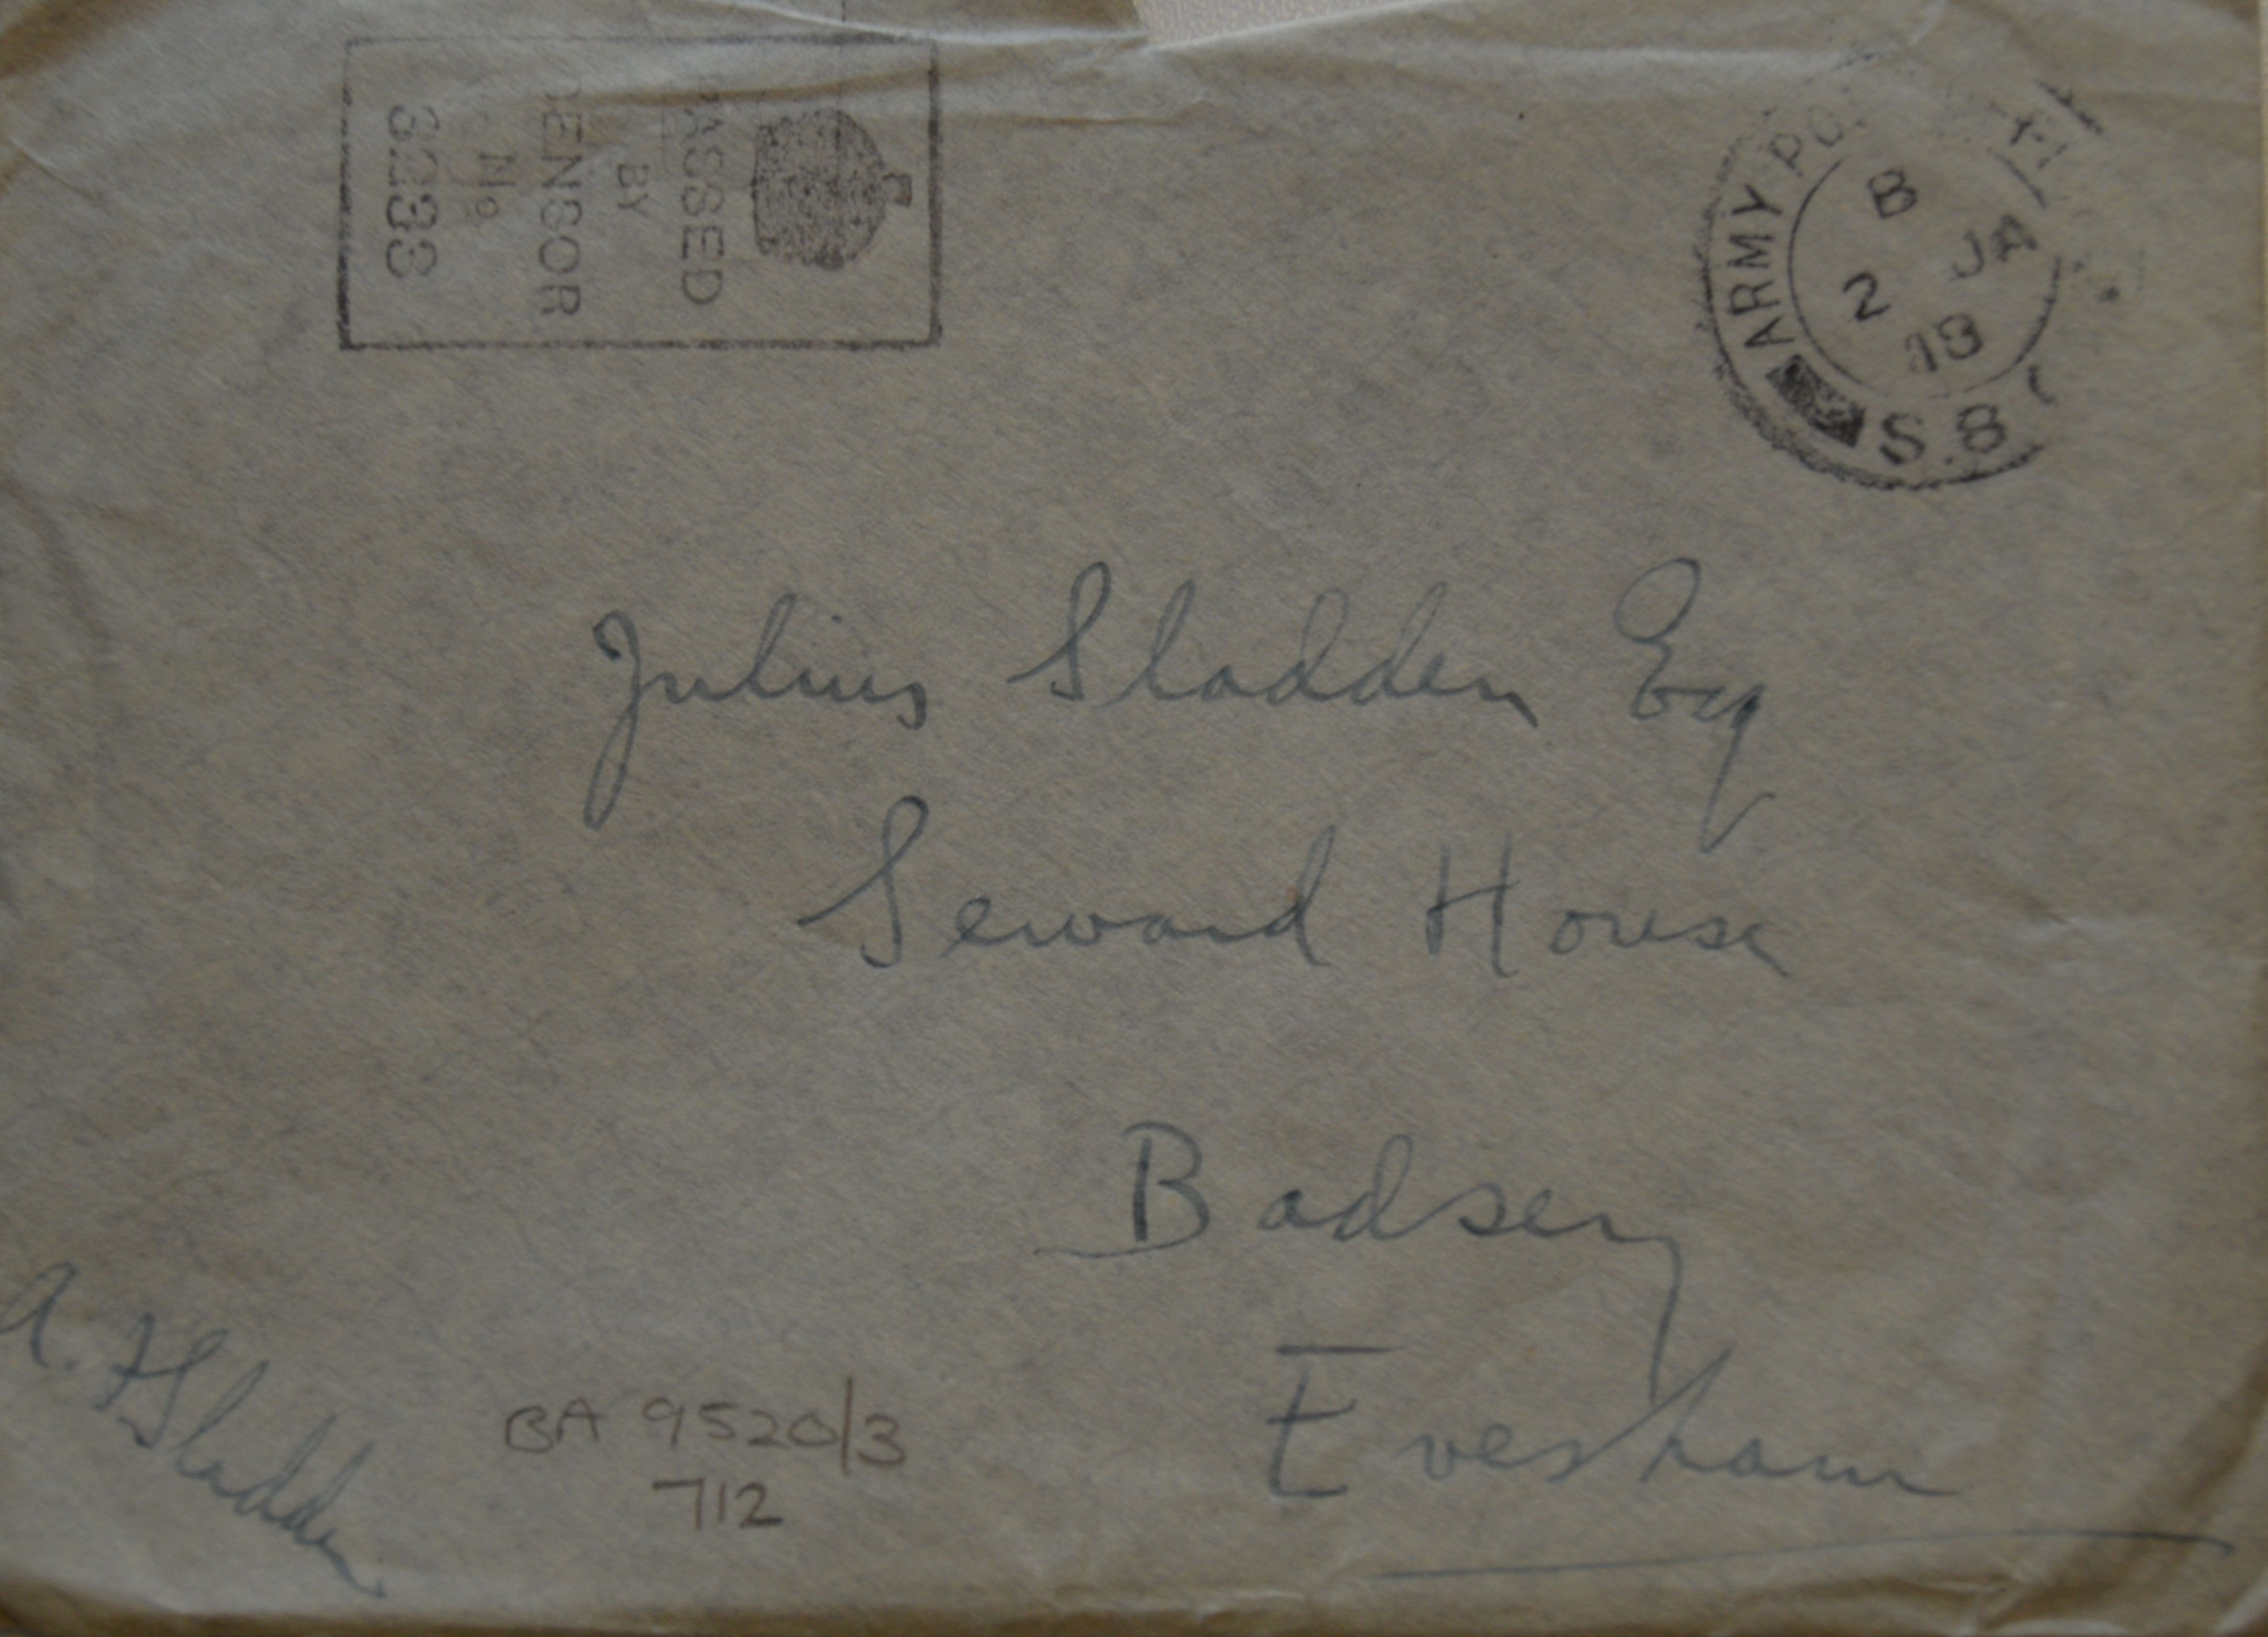 PASSED
BY
CENSOR
No
ARMY PO
B
JA
2
18
S.8
Julius Sladden Esq
Seward House
Badsey
Evesham
A. F Sladden
BA 9520/3
712